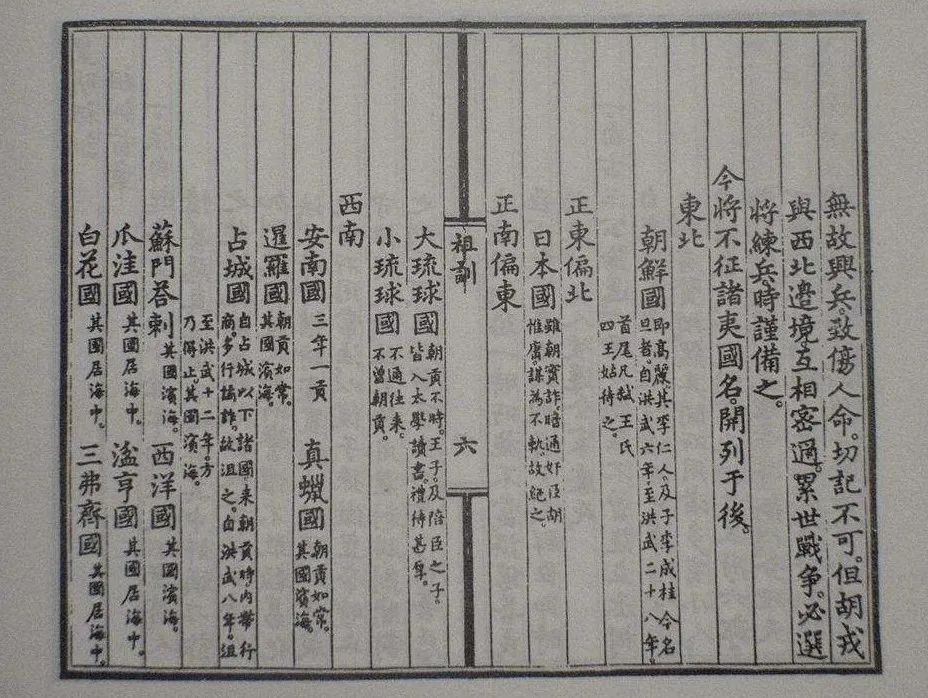 無故興兵。致傷人命。切記不可。但胡戎
與西北邊境。互相密邇。累世戰爭。必選
將練兵。時謹備之。
今將不征諸夷國名。開列于後。
東北
朝鮮國 即高麗其李仁人。及子李成桂今名
旦者。自洪武六年。至洪武二十八年。
首尾凡弒王氏
四王。姑待之。
正東偏北
日本國 雖朝實詐。暗通奸臣胡
惟庸。謀為不軌。故絕之。
正南偏東
祖訓 六
大琉球國 朝貢不時。王子。及陪臣之子。
皆入太學讀書。禮待甚厚。
小琉球國 不通往來。
不曾朝貢。
西南
安南國 三年一貢 真蠟國 朝貢如常。
其國濱海。
暹羅國 朝貢如常。
其國濱海。
占城國 自占城以下諸國。來朝貢時。內帶行
商。多行譎詐。故沮之。自洪武八年。沮
至洪武十二年。方
乃得止。其國濱海。
蘇門荅剌 其國濱海。 西洋國 其國濱海。
爪洼國 其國居海中。 湓亨國 其國居海中。
白花國 其國居海中。 三弗齊國 其國居海中。